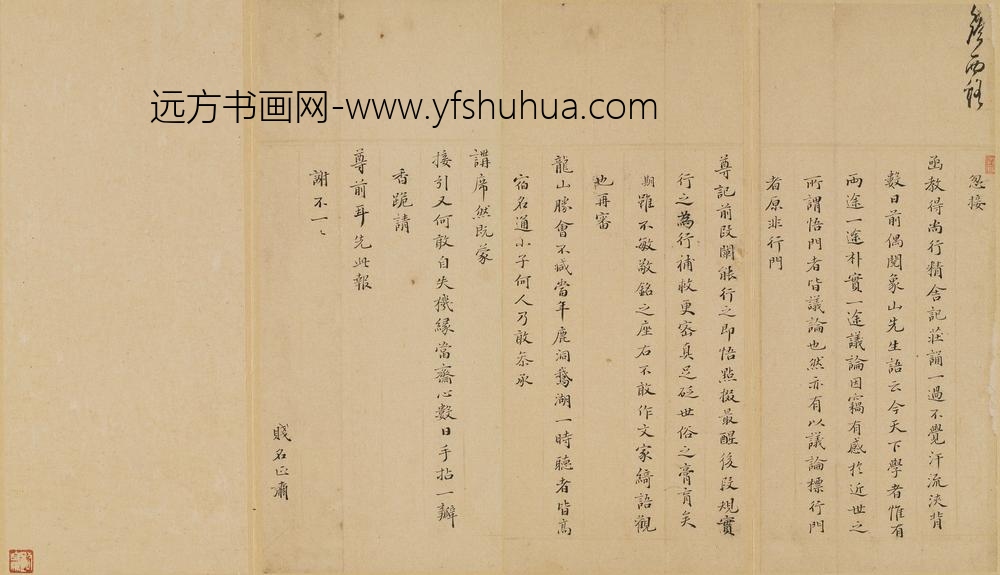 远方书画网-www.yfshuhua.com
忽接
函教得尚行精舍記莊誦一過不覺汗流浹背
數日前偶閱象山先生語云今天下學者惟有
兩途一途朴實一途議論因竊有感於近世之
所謂悟門者皆議論也然亦有以議論標行門
者原非行門
尊記前段闡能行之即悟點掇最醒後段規實
行之為行補救更密真足砭世俗之膏肓矣
期雖不敏敬銘之座右不敢作文家綺語觀
也再審
龍山勝會不減當年鹿洞鵞湖一時聽者皆高
宿名通小子何人乃敢叅承
講席然既蒙
接引又何敢自失機緣當齋心數日手拈一瓣
香跪請
尊前耳先此報
謝不一ミ
賤名正肅